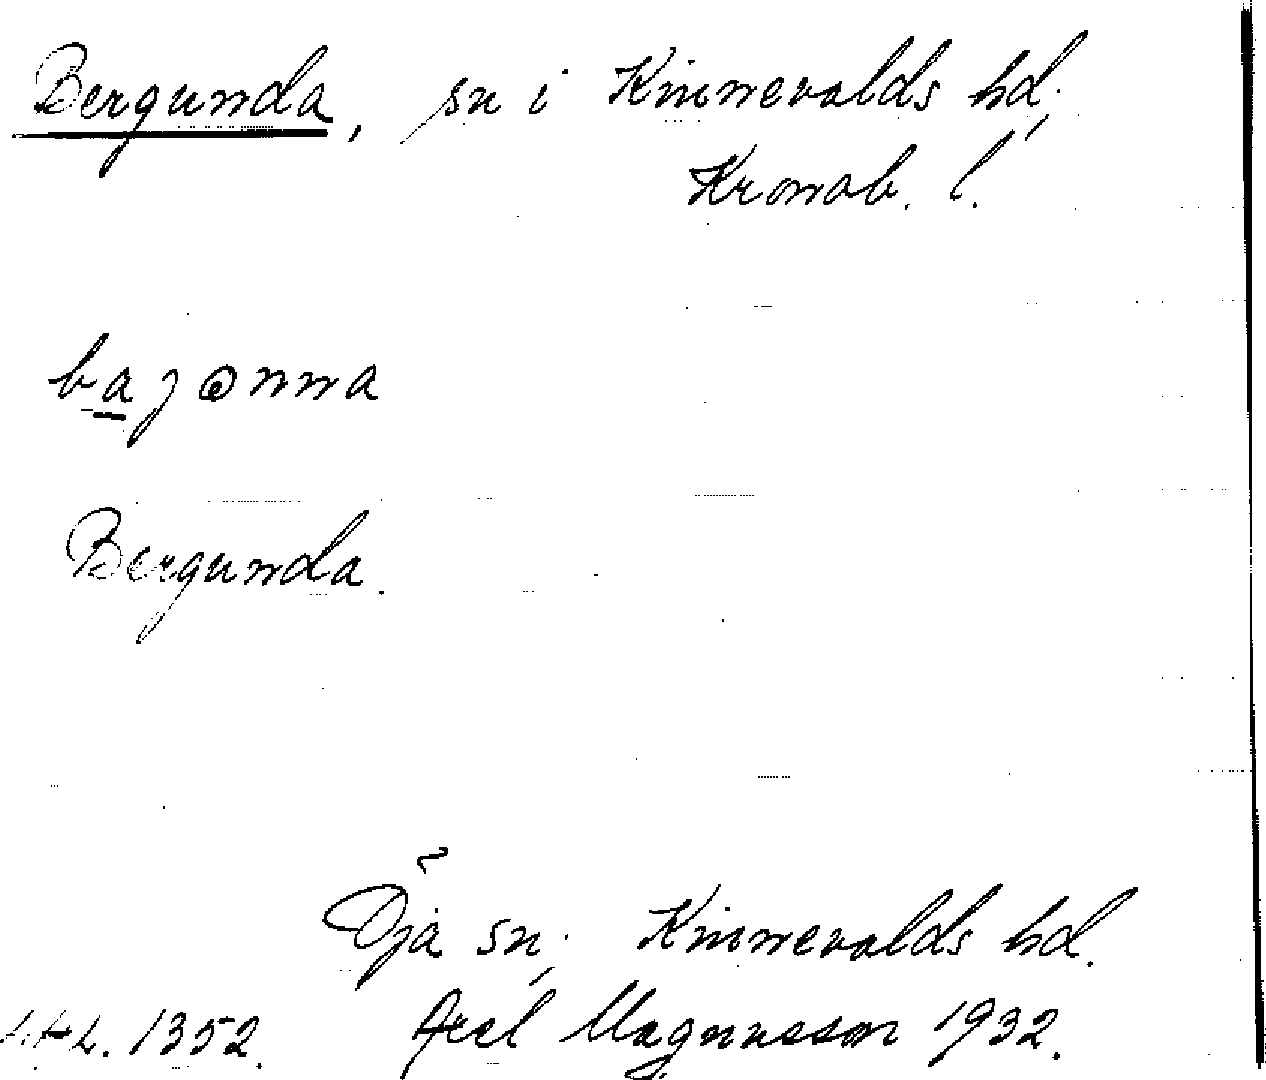 Bergunda, sn i Kinnevalds hd,
Kronob. l.
Bergunda.
Öja sn, Kinnevalds hd.
1352. Axel Magnusson 1932.